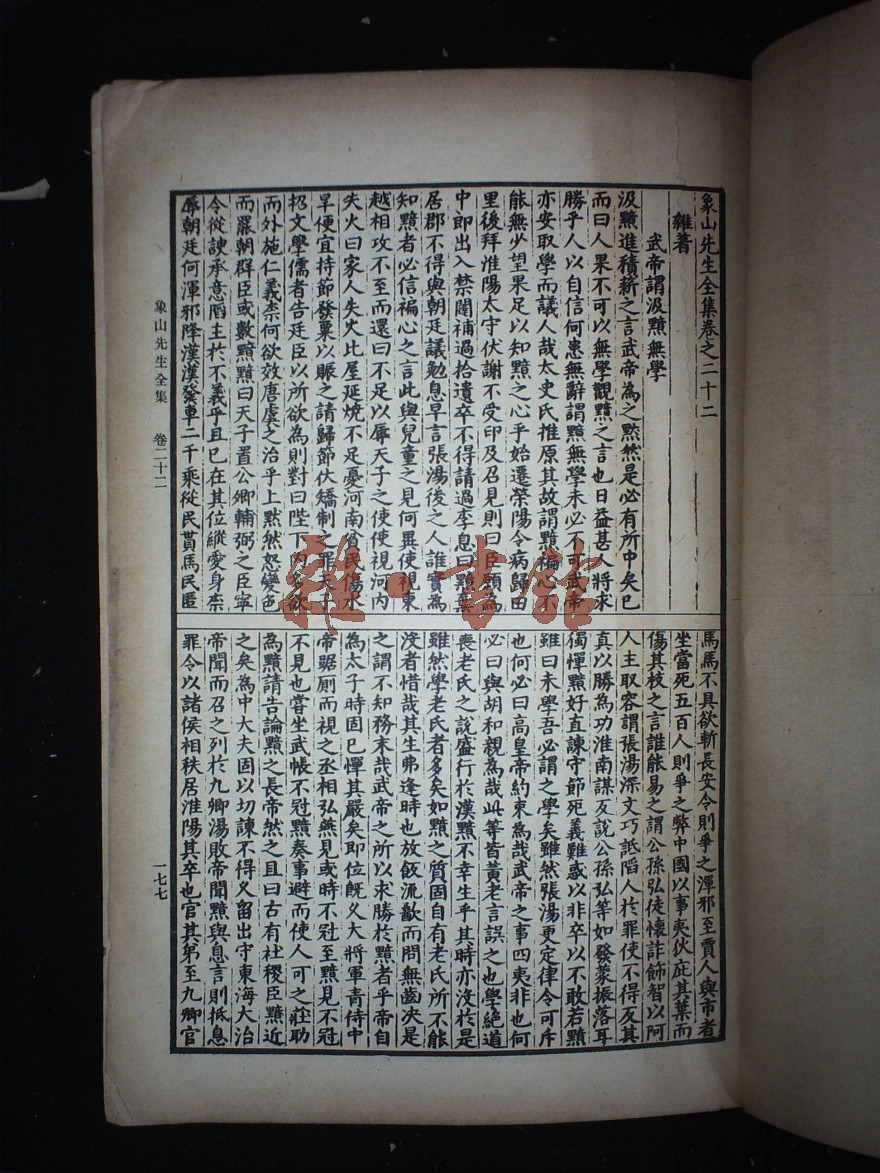 象山先生全集卷之二十二
雜著
武帝謂汲黯無學
汲黯進積薪之言武帝為之黙然是必有所中矣已
而曰人果不可以無學觀黯之言也日益甚人將求
勝乎人以自信何患無辭謂黯無學未必不可武帝
亦安取學而議人哉太史氏推原其故謂黯褊心不
能無少望果足以知黯之心乎始遷滎陽令病歸田
里後拜淮陽太守伏謝不受印及召見則曰臣願為
中郎出入禁闥補過拾遺卒不得請過李息曰黯棄
居郡不得與朝廷議勉息早言張湯後之人誰實為
知黯者必信褊心之言此與兒童之見何異使視東
越相攻不至而還曰不足以辱天子之使使視河內
失火曰家人失火比屋延燒不足憂河南貧民傷水
旱便宜持節發粟以賑之請歸節伏矯制之罪天子
招文學儒者告廷臣以所欲為則對曰陛下內多欲
而外施仁義柰何欲效唐虞之治乎上黙然怒變色
而罷朝群臣或數黯黯曰天子置公卿輔弼之臣寧
令從諛承意陷主於不義乎且已在其位縱愛身柰
辱朝廷何渾邪降漢漢發車二千乘從民貰馬民匿
馬馬不具欲斬長安令則爭之渾邪至賈人與市者
坐當死五百人則爭之弊中國以事夷狄庇其葉而
傷其枝之言誰能易之謂公孫弘徒懷詐飾智以阿
人主取容謂張湯深文巧詆陷人於罪使不得反其
真以勝為功淮南謀反說公孫弘等如發蒙振落耳
獨憚黯好直諫守節死義難惑以非卒以不敢若黯
雖曰未學吾必謂之學矣雖然張湯更定律令可斥
也何必曰高皇帝約束為哉武帝之事四夷非也何
必曰與胡和親為哉此等皆黃老言誤之也學絕道
喪老氏之說盛行於漢黯不幸生乎其時亦沒於是
雖然學老氏者多矣如黯之質固自有老氏所不能
沒者惜哉其生弗逢時也放飯流歠而問無齒決是
之謂不知務末哉武帝之所以求勝於黯者乎帝自
為太子時固已憚其嚴矣即位既久大將軍青侍中
帝踞厠而視之丞相弘燕見或時不冠至黯見不冠
不見也嘗坐武帳不冠黯奏事避而使人可之莊助
為黯請告論黯之長帝然之且曰古有社稷臣黯近
之矣為中大夫固以切諫不得久留出守東海大治
帝聞而召之列於九卿湯敗帝聞黯與息言則抵息
罪令以諸侯相秩居淮陽其卒也官其弟至九卿官
象山先生全集 卷二十二
一七七
雜·書館